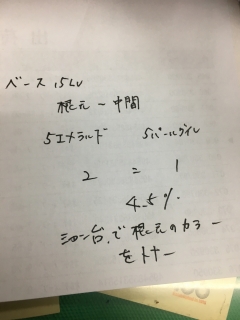 ベース 15LV
根元〜中間
5エメラルド 5パールグレイ
2 = 1
4.5%
シャンプー台で根元のカラー
をトナー